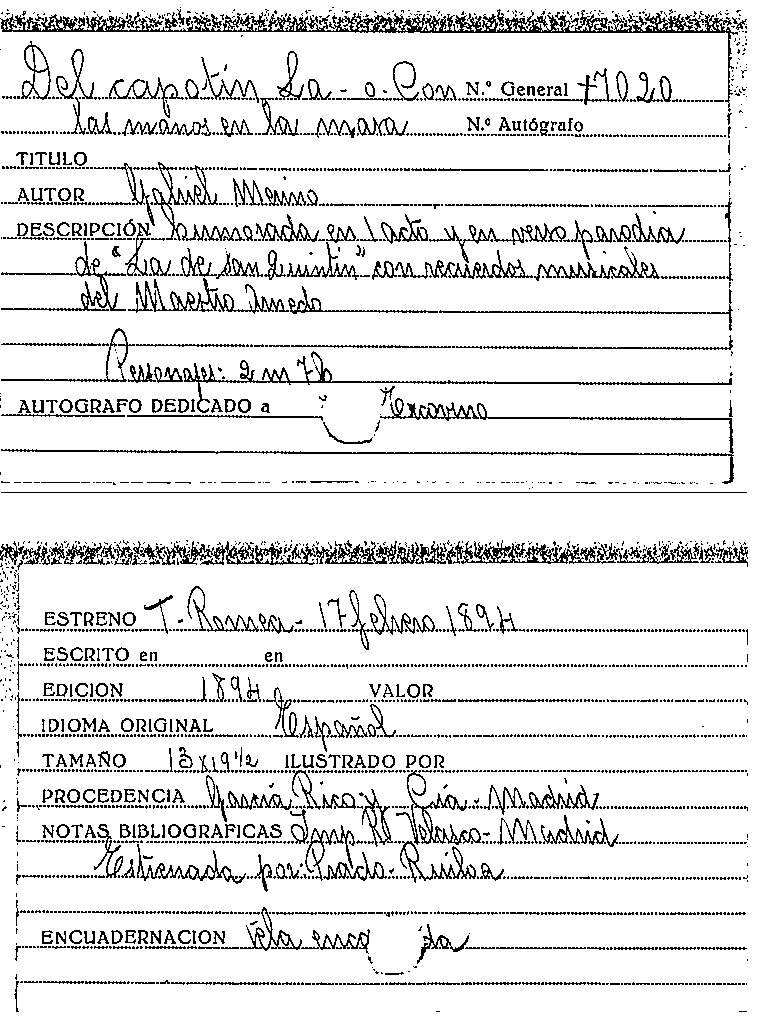 Del capotín La - o - Con N.º General 47020
las manos en la masa N.º Autógrafo
TITULO
AUTOR Gabriel Merino
DESCRIPCIÓN humorada en 1 acto y en verso parodia
de "La de San Quintín" con recuerdos musicales
del Maestro
Personajes: 2 m 7 h
AUTOGRAFO DEDICADO a
ESTRENO T. Romea - 17 febrero 1894
ESCRITO en en
EDICION 1894 VALOR
IDIOMA ORIGINAL Español
TAMAÑO 13x19½ ILUSTRADO POR
PROCEDENCIA García Rico y Cía - Madrid
NOTAS BIBLIOGRAFICAS Imp Rº Velasco - Madrid
Estrenada por: Prado -
ENCUADERNACION tela